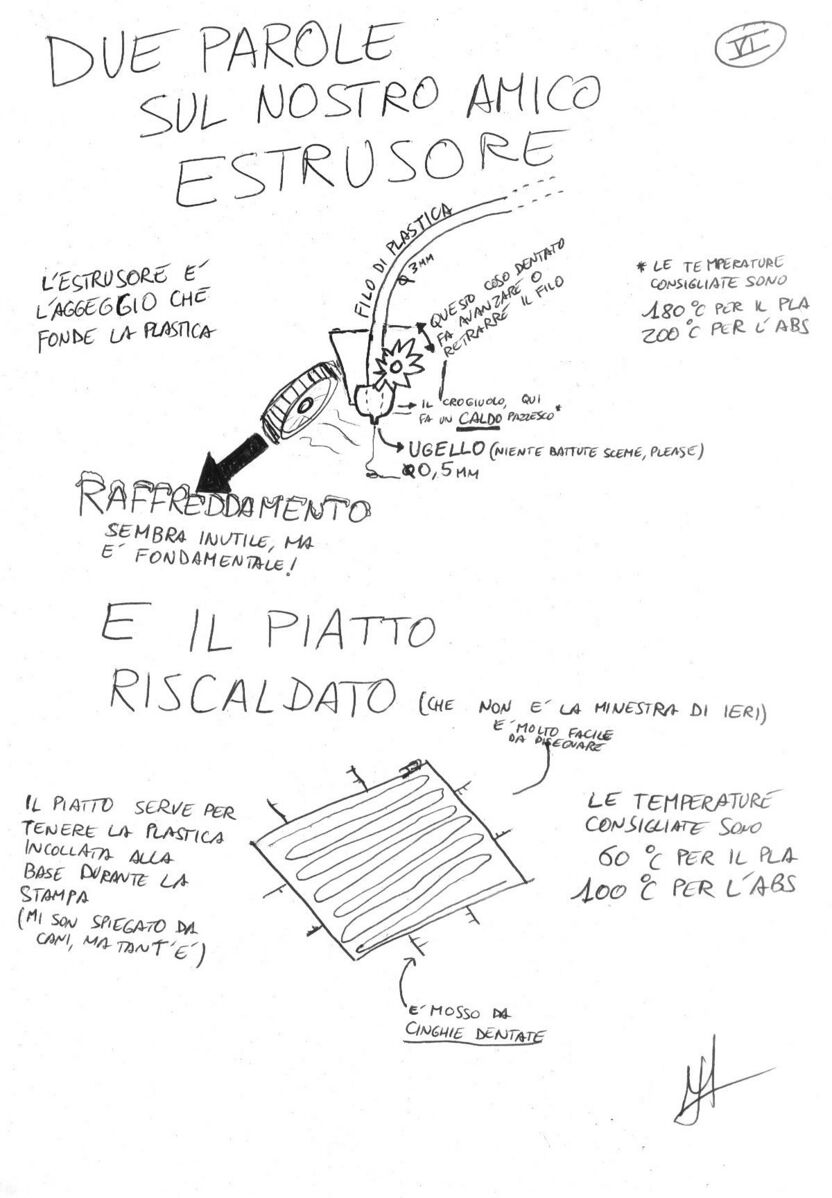 VI
DUE PAROLE
SUL NOSTRO AMICO
ESTRUSORE
L'ESTRUSORE E'
L'AGGEGGIO CHE
FONDE LA PLASTICA
FILO DI PLASTICA
Ø 3MM
QUESTO COSO DENTATO
FA AVANZARE O
RETRARRE IL FILO
* LE TEMPERATURE
CONSIGLIATE SONO
180 °C PER IL PLA
200 °C PER L'ABS
IL CROGIUOLO, QUI
FA UN CALDO PAZZESCO*
UGELLO (NIENTE BATTUTE SCEME, PLEASE)
Ø0,5MM
RAFFREDDAMENTO
SEMBRA INUTILE, MA
E' FONDAMENTALE!
E IL PIATTO
RISCALDATO (CHE NON E' LA MINESTRA DI IERI)
E' MOLTO FACILE
DA DISEGNARE
IL PIATTO SERVE PER
TENERE LA PLASTICA
INCOLLATA ALLA
BASE DURANTE LA
STAMPA
(MI SON SPIEGATO DA
CANI, MA TANT'E')
LE TEMPERATURE
CONSIGLIATE SONO
60 °C PER IL PLA
100 °C PER L'ABS
E' MOSSO DA
CINGHIE DENTATE